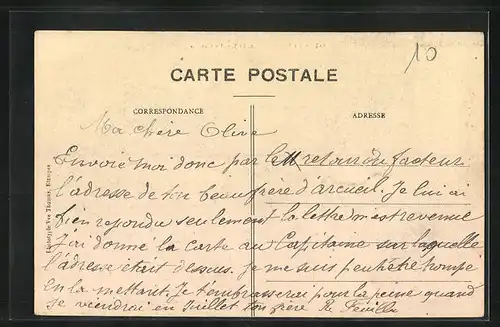 10
CARTE POSTALE
CORRESPONDANCE
ADRESSE
Ma chère Olive
Envoie moi donc par le retour du facteur
l'adresse de ton beau frère d'arcueil. Je lui ai
bien repondu seulement la lettre m'est revenue
J'ai donné la carte au Capitaine sur laquelle
l'adresse était dessus. Je me suis peut être trompé
en la mettant. Je t'embrasserai pour la peine quand
je viendrai en Juillet ton frère
Vve Thomas, Etampes